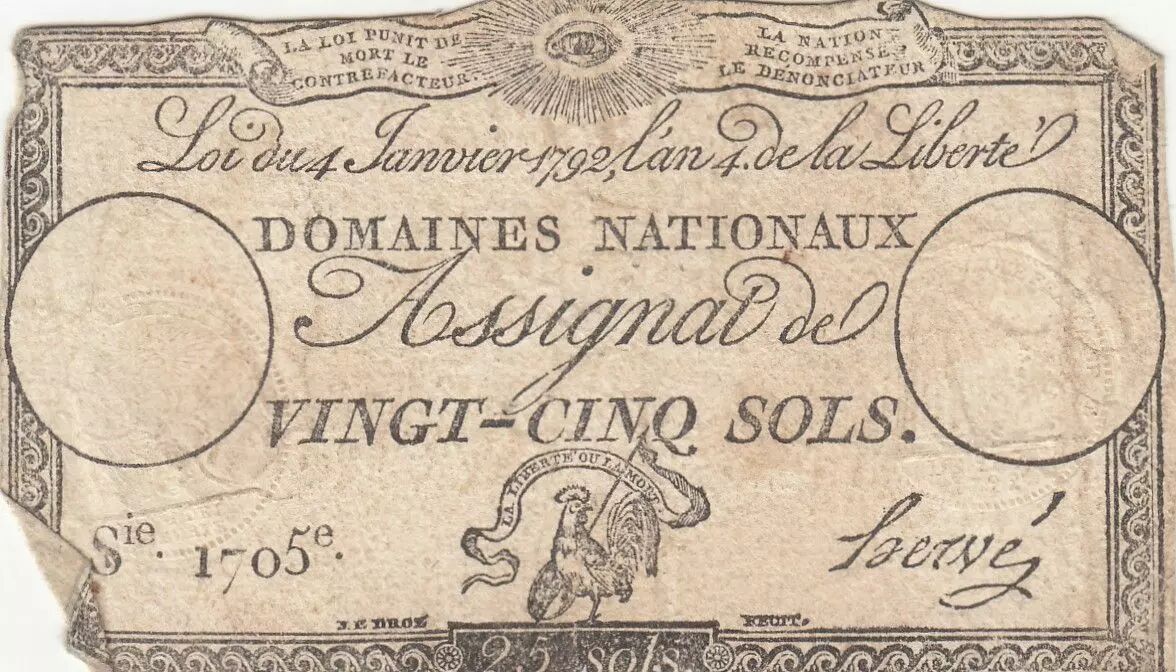 LA LOI PUNIT DE
MORT LE
CONTREFACTEUR.
LA NATION
RECOMPENSE
LE DENONCIATEUR
Loi du 4 Janvier 1792, l'an 4. de la Liberté
DOMAINES NATIONAUX
Assignat de
VINGT-CINQ SOLS.
LA LIBERTÉ OU LA MORT
Sie. 1705e.
Hervé
J.P. DROZ FECIT.
25 sols